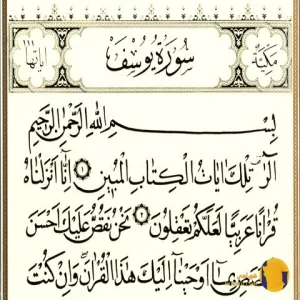 مكية سورة يوسف اياتها
بسم الله الرحمن الرحيم
الر تلك ايات الكتاب المبين ۝١ انا انزلناه
قرانا عربيا لعلكم تعقلون ۝٢ نحن نقص عليك احسن
القصص بما اوحينا اليك هذا القران وان كنت